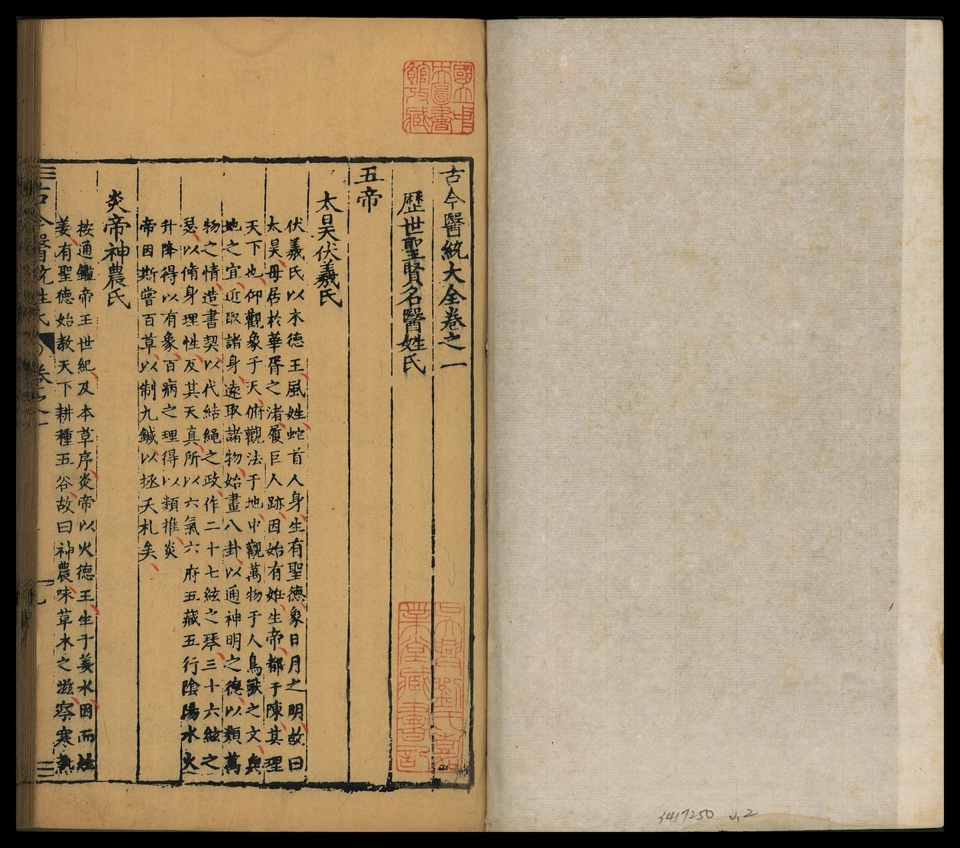 古今醫統大全卷之一
歷世聖賢名醫姓氏
五帝
太昊伏羲氏
伏羲氏以木德王風姓蛇首人身生有聖德象日月之明故曰
太昊母居於華胥之渚履巨人跡因始有娠生帝都于陳其理
天下也仰觀象于天俯觀法于地中觀萬物于人鳥獸之文與
地之宜近取諸身遠取諸物始畫八卦以通神明之德以類萬
物之情造書契以代結繩之政作二十七絃之琴三十六絃之
瑟以脩身理性反其天真所以六氣六府五藏五行陰陽水火
升降得以有象百病之理得以類推炎
帝因斯嘗百草以制九鍼以拯夭札矣
炎帝神農氏
按通鑑帝王世紀及本草序炎帝以火德王生于姜水因而姓
姜有聖德始教天下耕種五谷故曰神農味草木之滋察寒熱
古今醫統姓氏 卷之一
國立中央圖書館收藏
吳興劉氏嘉業堂藏書記
3417250 v.2